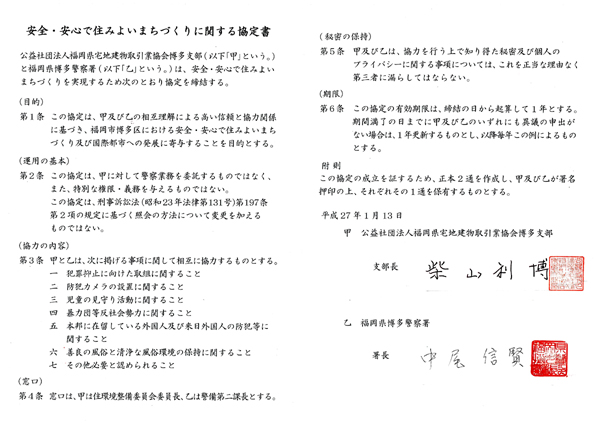 安全・安心で住みよいまちづくりに関する協定書
公益社団法人福岡県宅地建物取引業協会博多支部(以下「甲」という。)
と福岡県博多警察署(以下「乙」という。)は、安全・安心で住みよい
まちづくりを実現するため次のとおり協定を締結する。
(目的)
第1条 この協定は、甲及び乙の相互理解による高い信頼と協力関係
に基づき、福岡市博多区における安全・安心で住みよいまち
づくり及び国際都市への発展に寄与することを目的とする。
(運用の基本)
第2条 この協定は、甲に対して警察業務を委託するものではなく、
また、特別な権限・義務を与えるものではない。
この協定は、刑事訴訟法(昭和23年法律第131号)第197条
第2項の規定に基づく照会の方法について変更を加える
ものではない。
(協力の内容)
第3条 甲と乙は、次に掲げる事項に関して相互に協力するものとする。
一 犯罪抑止に向けた取組に関すること
二 防犯カメラの設置に関すること
三 児童の見守り活動に関すること
四 暴力団等反社会勢力に関すること
五 本邦に在留している外国人及び来日外国人の防犯等に
関すること
六 善良の風俗と清浄な風俗環境の保持に関すること
七 その他必要と認められること
(窓口)
第4条 窓口は、甲は住環境整備委員会委員長、乙は警備第二課長とする。
(秘密の保持)
第5条 甲及び乙は、協力を行う上で知り得た秘密及び個人の
プライバシーに関する事項については、これを正当な理由なく
第三者に漏らしてはならない。
(期限)
第6条 この協定の有効期限は、締結の日から起算して1年とする。
期間満了の日までに甲及び乙のいずれにも異議の申出が
ない場合は、1年更新するものとし、以降毎年この例によるもの
とする。
附則
この協定の成立を証するため、正本2通を作成し、甲及び乙が署名
押印の上、それぞれその1通を保有するものとする。
平成27年1月13日
甲 公益社団法人福岡県宅地建物取引業協会博多支部
支部長 柴山利博
乙 福岡県博多警察署
署長 中尾信賢